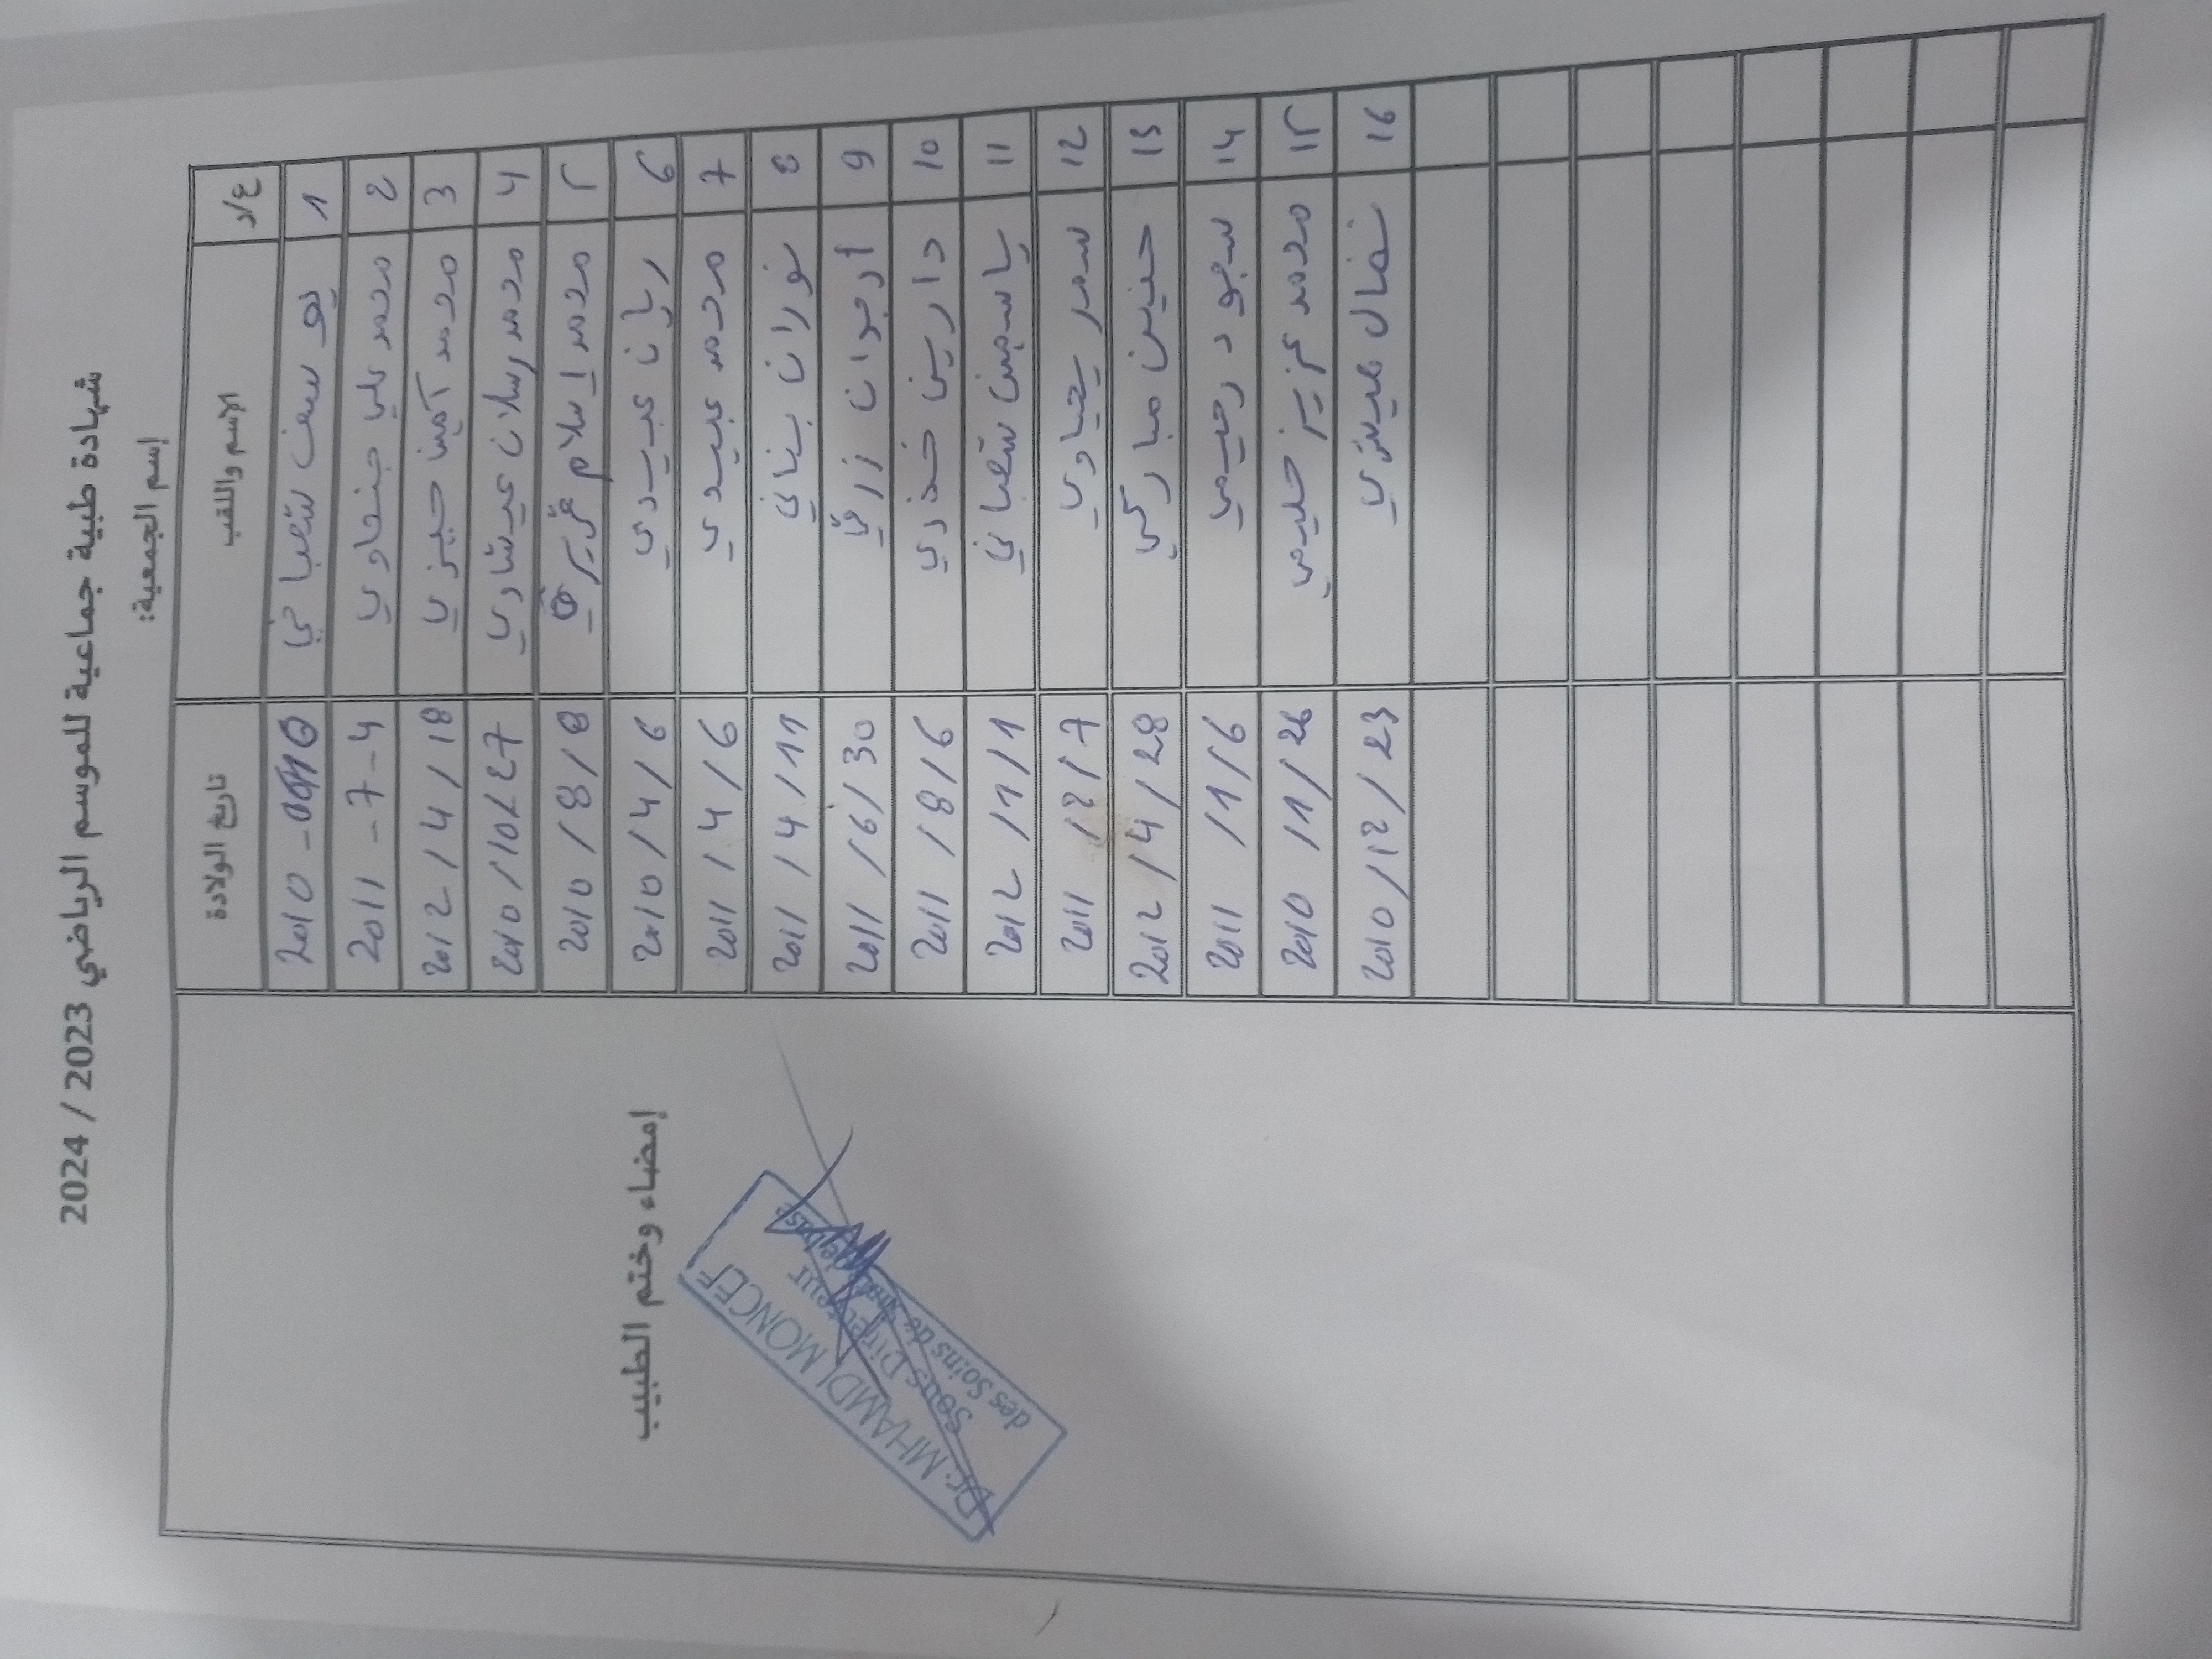 شهادة طبية جماعية للموسم الرياضي 2023 / 2024
إسم الجمعية:
ع/د الاسم واللقب تاريخ الولادة
1 يوسف شعباني 2010 -
2 محمد علي جنحاوي 2011 - 7 - 4
3 محمد أمين حيزي 2012 / 4 / 18
4 محمد رسلان عيشاوي 2010 / 10 / 27
5 محمد إسلام 2010 / 8 / 8
6 ريان عبيدي 2010 / 4 / 6
7 محمد عبيدي 2011 / 4 / 6
8 نوران بناني 2011 / 4 / 11
9 أرجوان زرقي 2011 / 6 / 30
10 دارين خذري 2011 / 8 / 6
11 ياسمين شعباني 2012 / 1 / 1
12 سمر يحياوي 2011 / 2 / 7
13 حنين مباركي 2012 / 4 / 28
14 سجود رحيمي 2011 / 1 / 6
15 محمد عزيز حليمي 2010 / 1 / 26
16 نضال ميستري 2010 / 12 / 23
إمضاء وختم الطبيب
Dr. MHAMDI MONCEF
Sous Directeur
des Soins de Santé de base